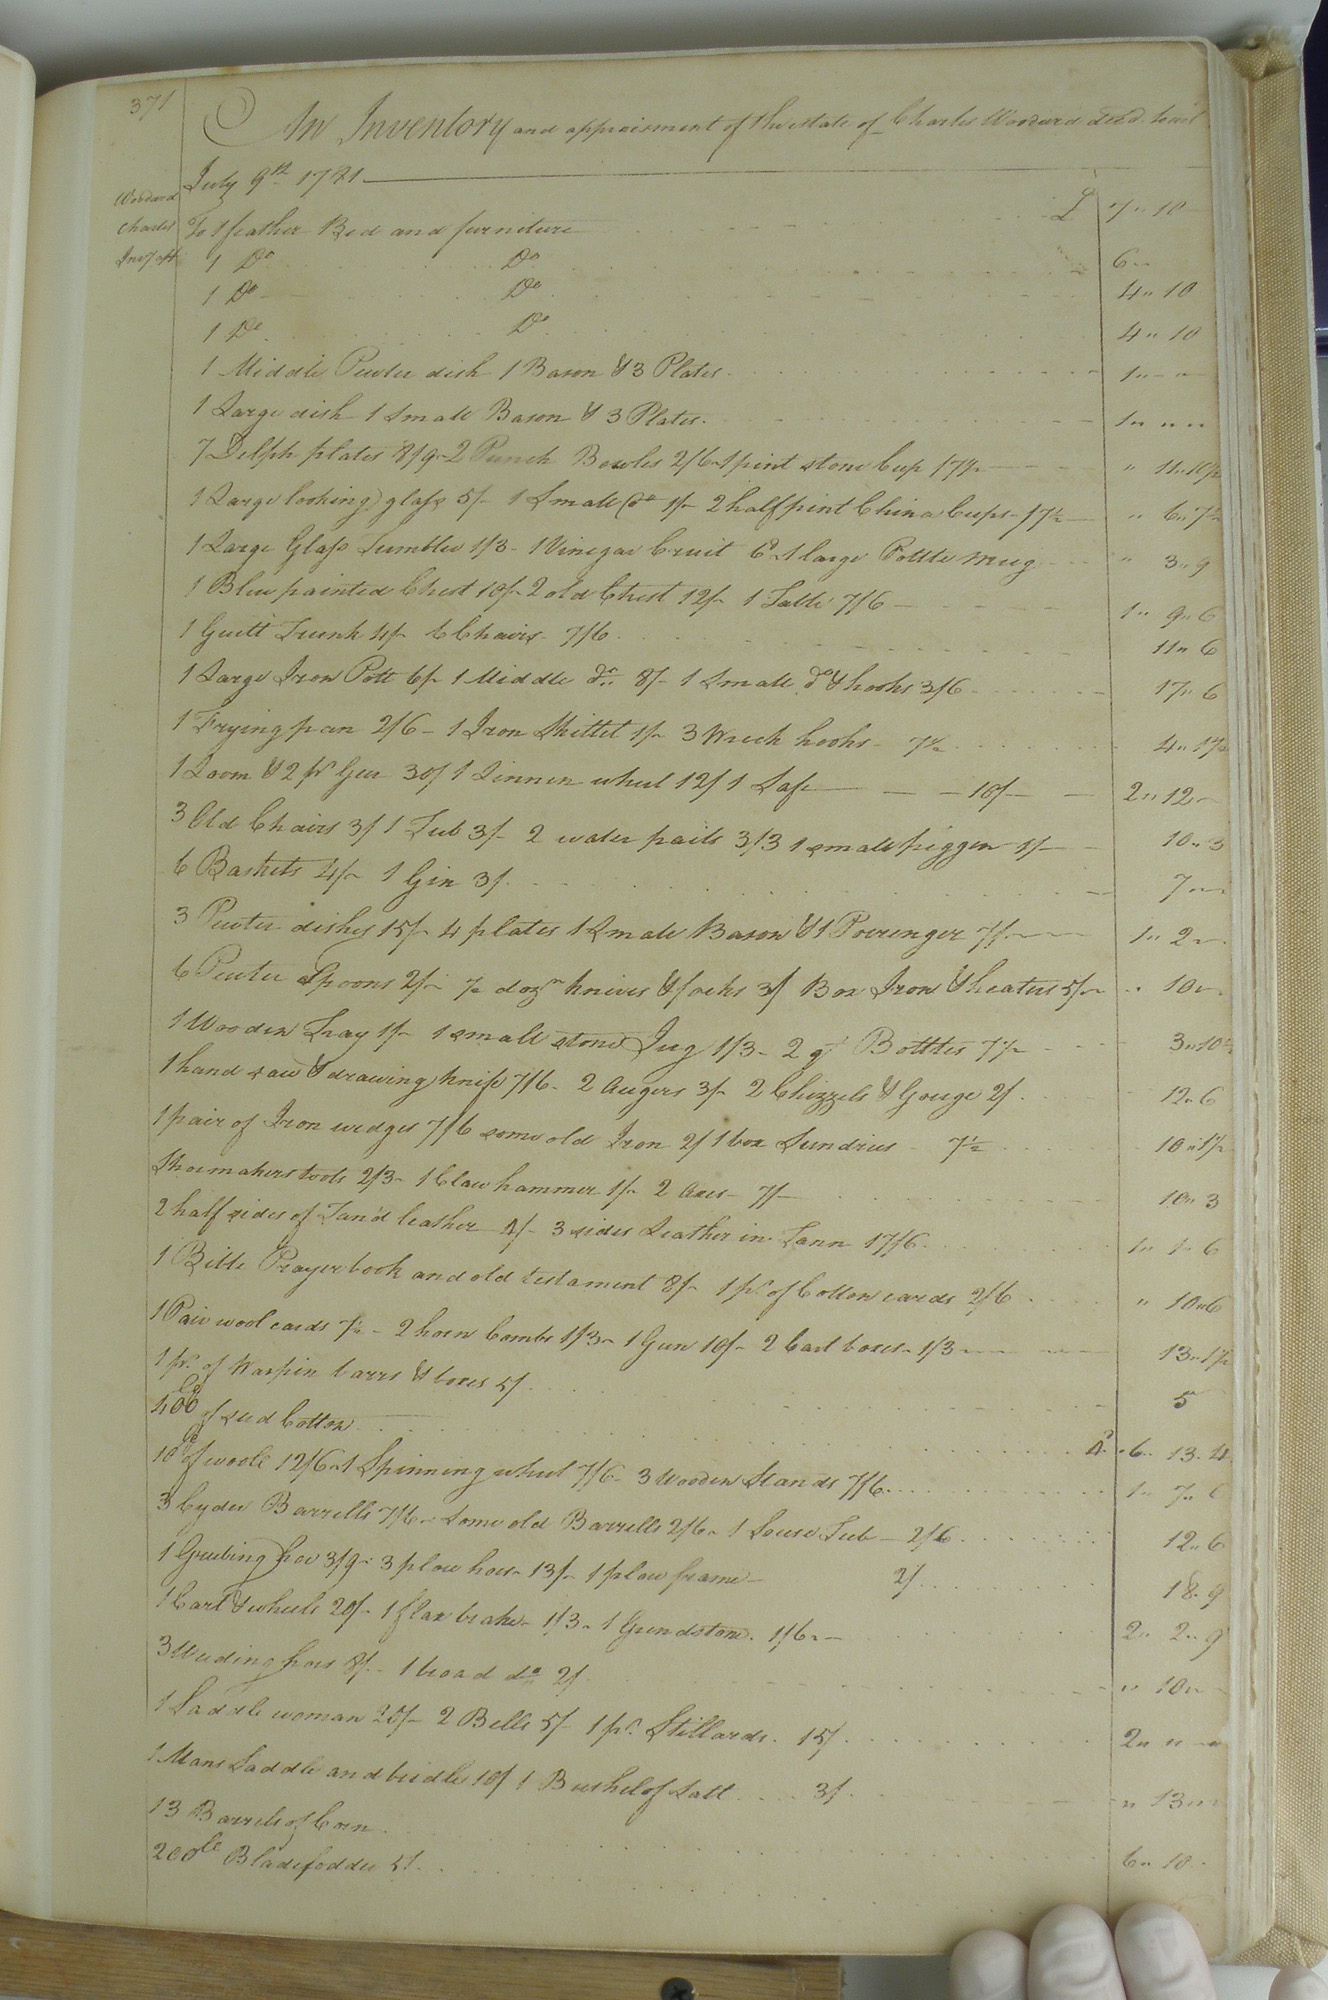 371
An Inventory and appraisment of the estate of Charles Woodard decd. to wit
July 9th 1781
Woodard Charles Invy &
To 1 feather Bed and furniture £ 7 " 10
1 Do Do 6 "
1 Do Do 4 " 10
1 Do Do 4 " 10
1 Middle Pewter dish 1 Bason & 3 Plates 1 " "
1 Large dish 1 Small Bason & 3 Plates 1 " " "
7 Delph plates 8/9 - 2 Punch Bowles 2/6 - 1 pint stone Cup /7½ " 11 " 10½
1 Large looking glass 5/- 1 Small Do 1/- 2 half pint China Cups - /7½ " 6 " 7½
1 Large Glass Tumbler 1/3 - 1 Vinegar Cruit 6d - 1 large Pottle Mug " 3 " 9
1 Blue painted Chest 10/- 2 old Chest 12/- 1 Table 7/6 1 " 9 " 6
1 Guilt Trunk 4/- 6 Chairs - 7/6 11 " 6
1 Large Iron Pott 6/- 1 Middle do. 8/- 1 Small do & hooks 3/6 17 " 6
1 Frying pan 2/6 - 1 Iron Skittet 1/- 3 Wreck hooks - 7½ 4 " 1½
1 Loom & 2 pr Geer 30/ 1 Linnen wheel 12/ 1 Safe 10/- 2 " 12
3 Old Chairs 3/ 1 Tub 3/- 2 water pails 3/3 1 small piggen 1/- 10 " 3
6 Baskets 4/- 1 Gin 3/. 7 "
3 Pewter dishes 15/- 4 plates 1 Small Bason & 1 Porrenger 7/- 1 " 2 "
6 Pewter Spoons 2/- ½ dozn knives & forks 3/ Box Iron & heaters 5/- " 10 "
1 Wooden Tray 1/- 1 small stone Jug 1/3 - 2 qt Bottles 7½ 3 " 10½
1 hand saw & drawing knife 7/6 - 2 Augers 3/- 2 Chizzels & Gouge 2/ 12 " 6
1 pair of Iron wedges 7/6 some old Iron 2/ 1 box Sundries - 7½ 10 " 1½
Shoemakers tools 2/3 - 1 Claw hammer 1/- 2 Axes - 7/- 10 " 3
2 half sides of Tan'd leather 4/- 3 sides Leather in Tann 17/6 1 " 1 " 6
1 Bible Prayer book and old testament 8/- 1 pr of Cotton cards 2/6 " 10 " 6
1 Pair wool cards 7½ - 2 horn Combs 1/3 - 1 Gun 10/- 2 Cart boxes - 1/3 13 " 1½
1 pr. of Warpin barrs & boxes 5/ 5
400 lb of seed Cotton 4d " 6 " 13 " 4
10 lb of wooll 12/6 - 1 Spinning wheel 7/6 - 3 Wooden Stands 7/6 1 " 7 " 6
3 Cyder Barrells 7/6 - some old Barrells 2/6 - 1 Souse Tub - 2/6 12 " 6
1 Grubing hoe 3/9 - 3 plow hoes - 13/- 1 plow frame - 2/ 18 " 9
1 Cart & wheels 20/- 1 flax brake - 1/3 - 1 Grindstone. 1/6 - 2 " 2 " 9
3 Weeding hoes 8/. - 1 broad do 2/ " 10 "
1 Saddle woman 20/- 2 Bells 5/- 1 pr. Stillards. 15/ 2 " " "
1 Mans Saddle and bridle 10/ 1 Bushel of Salt 3/ " 13 "
13 Barrels of Corn
200 lb Bladefodder 5/ 6 " 10